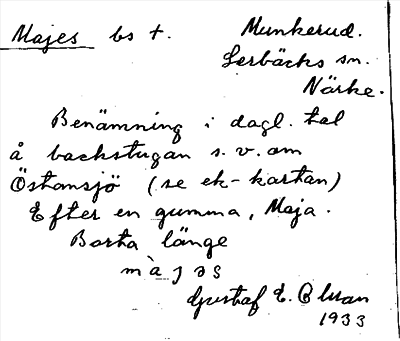 Majes bs t. Munkerud.
Lerbäcks sn.
Närke.
Benämning i dagl. tal
å backstugan s.v. om
Östansjö (se ek-kartan)
Efter en gumma, Maja.
Borta länge
màjəs
Gustaf E. Olsson
1933